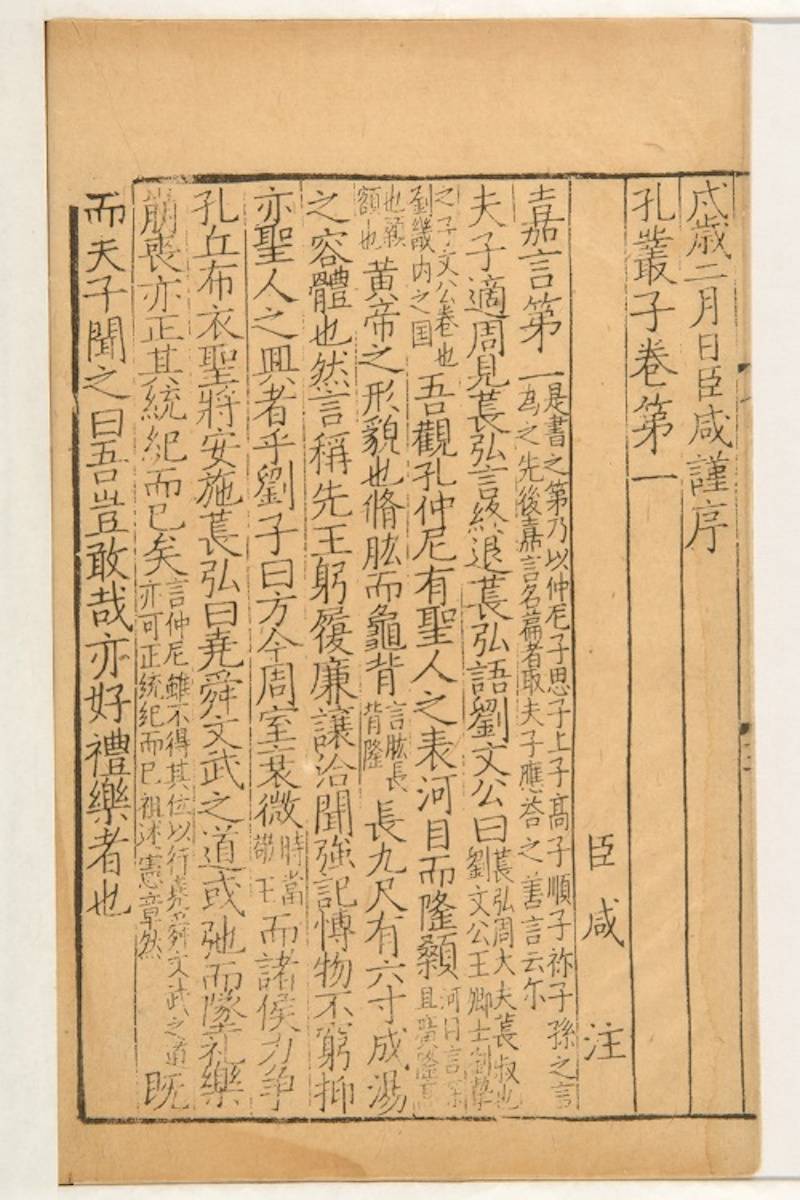 戍歲二月日臣咸謹序
孔叢子卷第一
臣咸注
嘉言第一是書之第乃以仲尼子思子上子高子順子祢子孫之言為之先後嘉言名篇者取夫子應荅之善言云尔
夫子適周見萇弘言終退萇弘語劉文公曰萇弘周大夫萇叔也劉文公王卿士劉摯
之子文公卷也劉畿内之国吾觀孔仲尼有聖人之表河目而隆顙河目言深且廣隆高
也顙額也黃帝之形貌也脩肱而龜背言肱長背隆長九尺有六寸成湯
之容體也然言稱先王躬履廉讓洽聞強記博物不窮抑
亦聖人之興者乎劉子曰方今周室衰微時當敬王而諸侯力爭
孔丘布衣聖將安施萇弘曰堯舜文武之道或弛而墜礼樂
崩喪亦正其統紀而已矣言仲尼雖不得其位以行堯舜文武之道亦可正統紀而已祖述憲章然既
而夫子聞之曰吾豈敢哉亦好禮樂者也